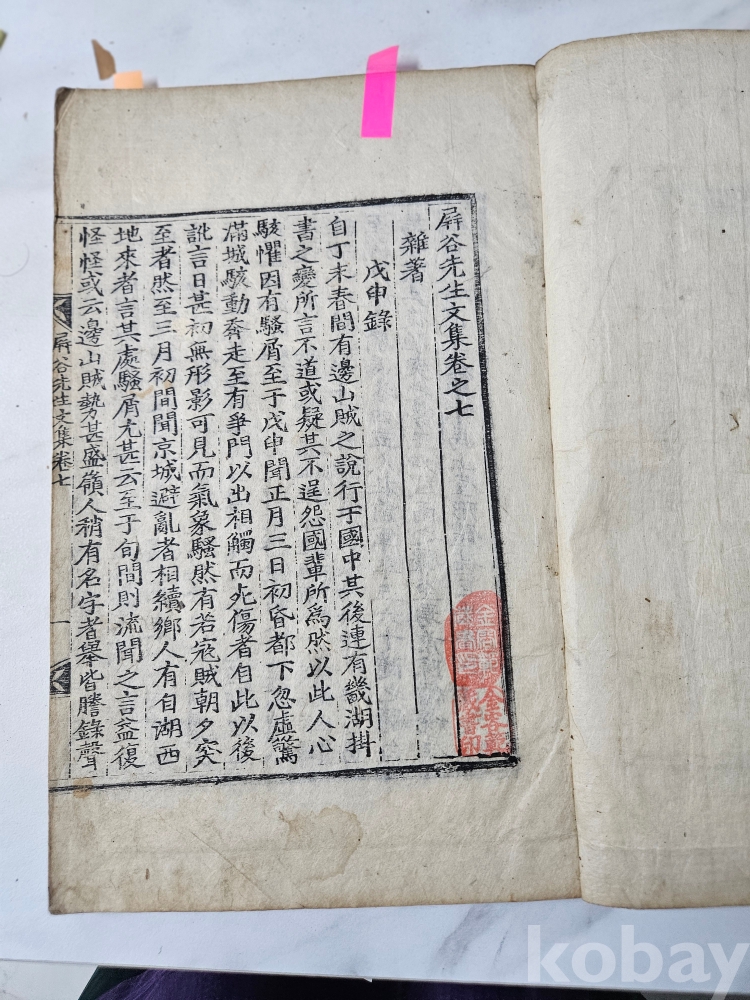 屛谷先生文集卷之七
雜著
戊申錄
自丁未春間有邊山賊之說行于國中其後連有畿湖掛
書之變所言不道或疑其不逞怨國輩所爲然以此人心
駭懼因有騷屑至于戊申聞正月三日初昏都下忽虛驚
滿城駭動奔走至有爭門以出相觸而死傷者自此以後
訛言日甚初無形影可見而氣象騷然有若寇賊朝夕突
至者然至三月初間聞京城避亂者相續鄕人有自湖西
地來者言其處騷屑尤甚云至于旬間則流聞之言益復
怪怪或云邊山賊勢甚盛嶺人稍有名字者擧皆謄錄聲
屛谷先生文集卷七
一
kobay